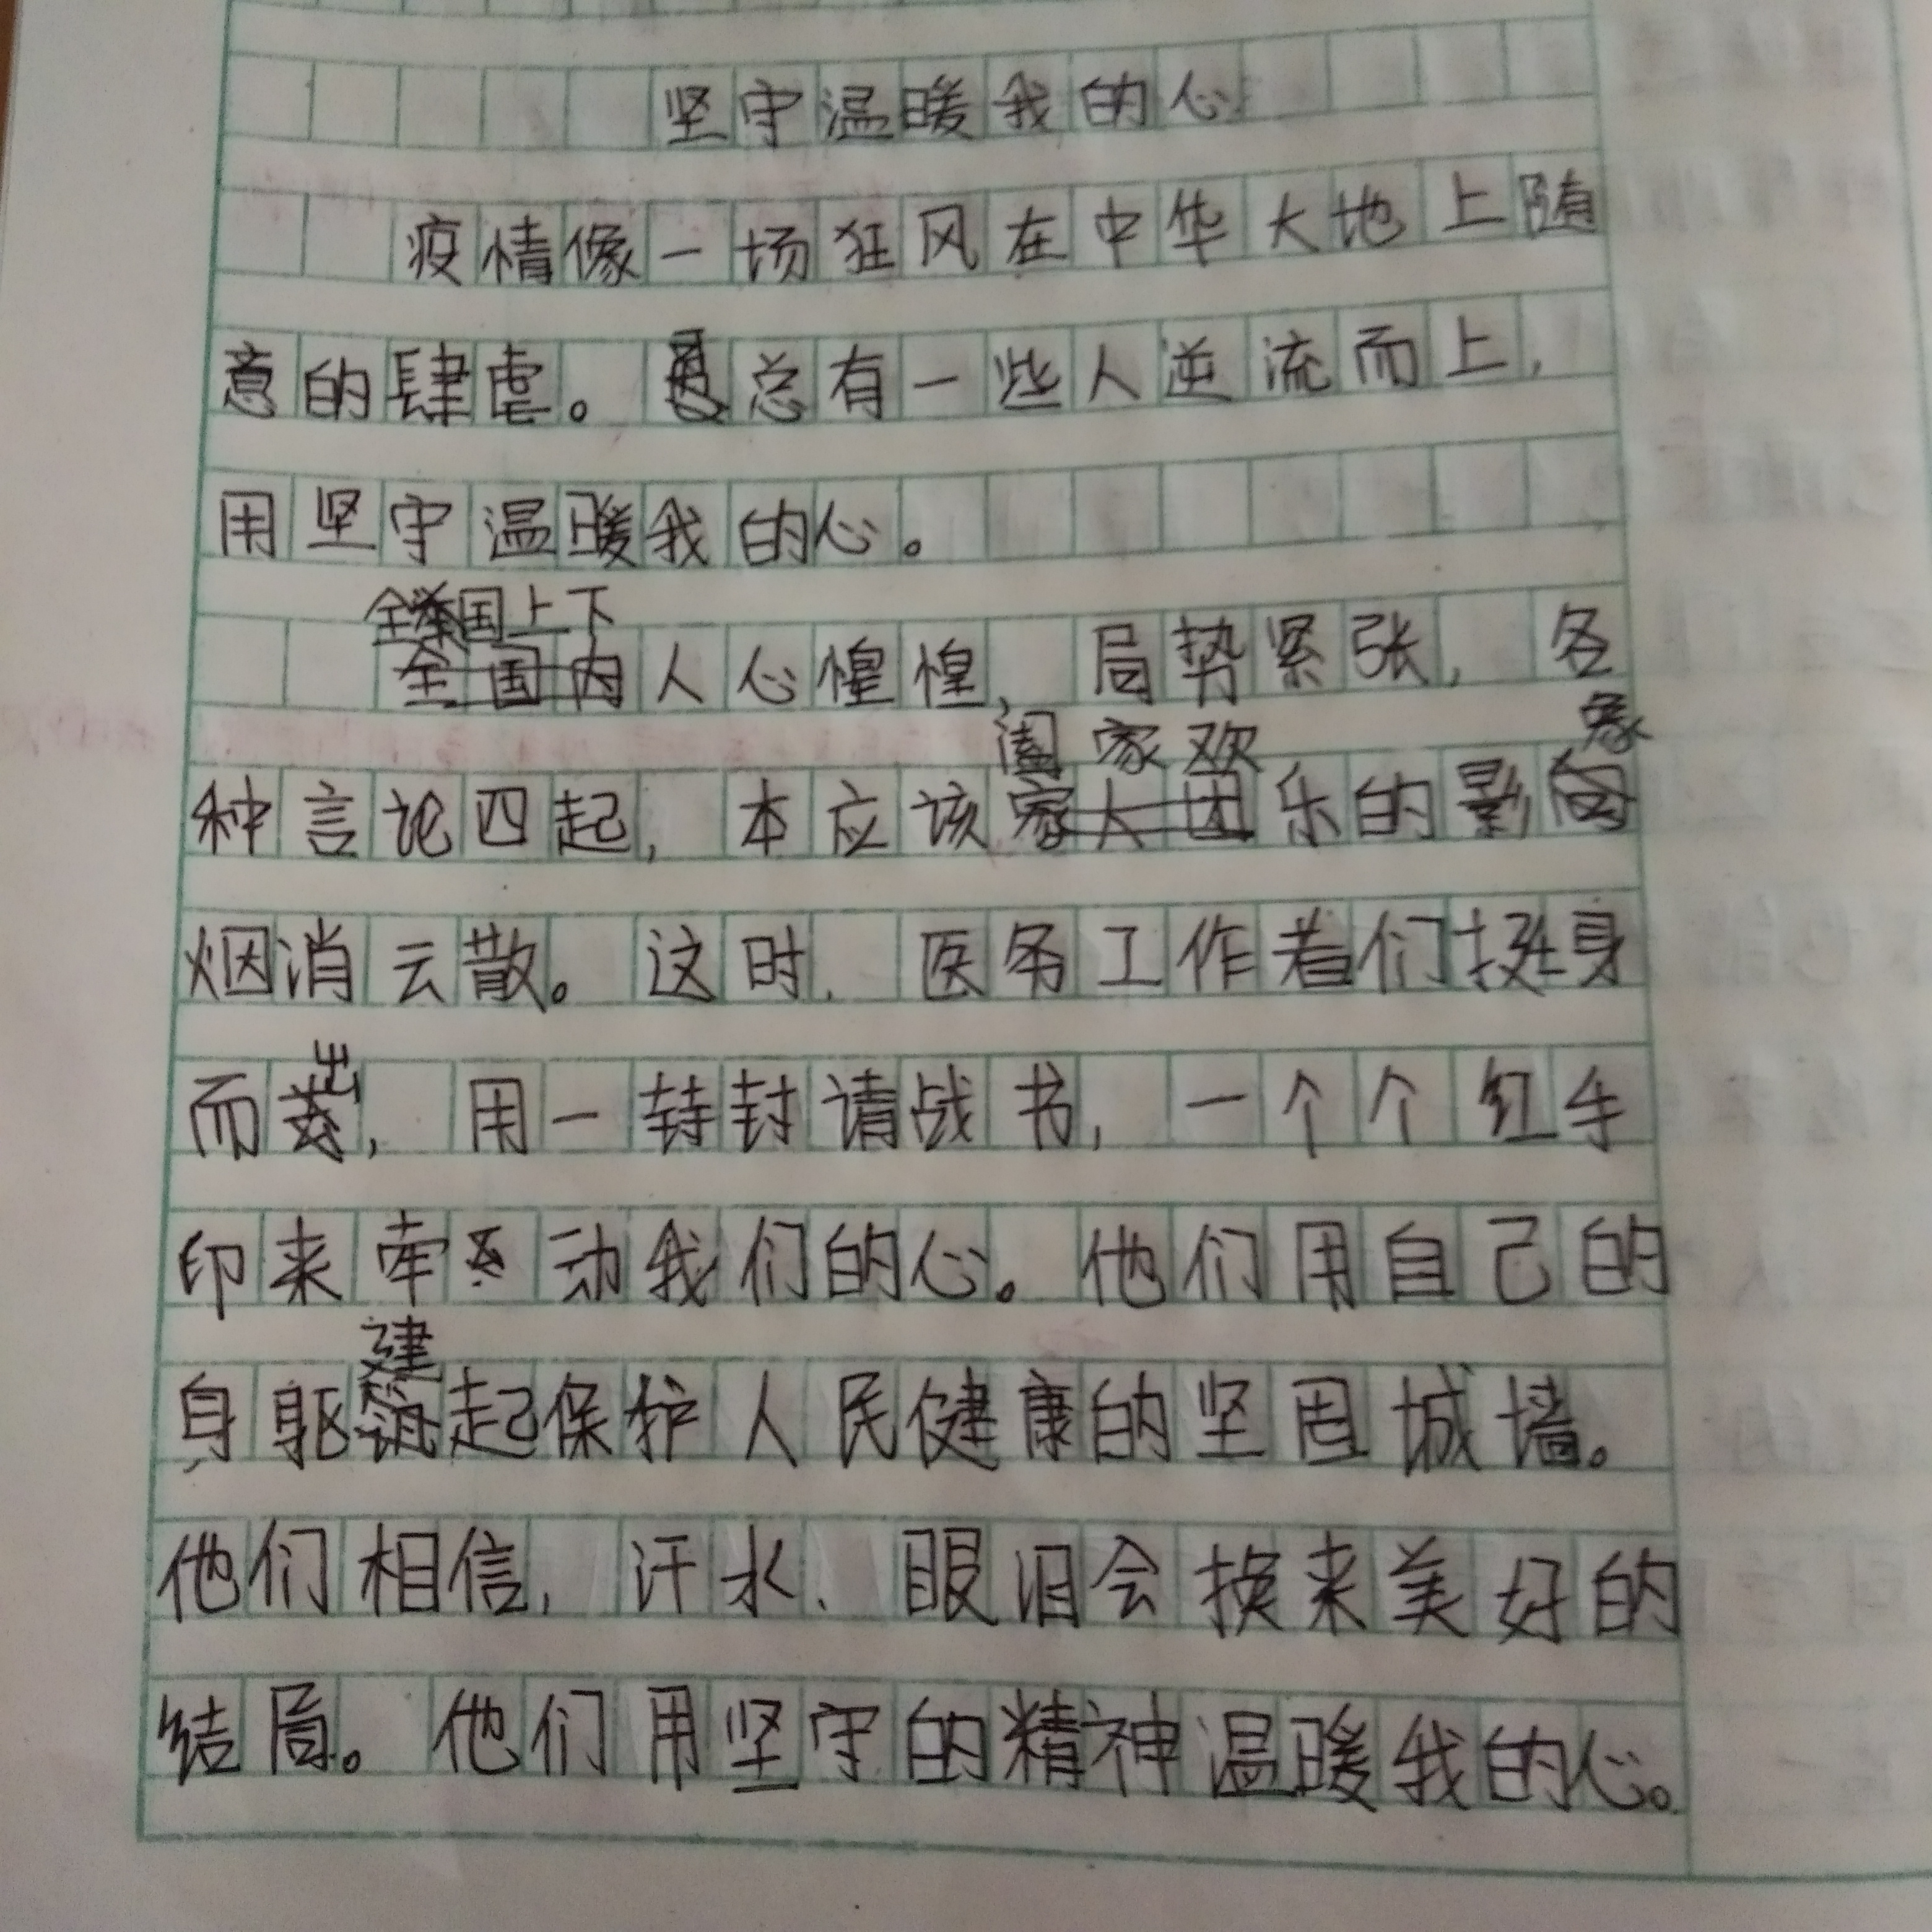 坚守温暖我的心
疫情像一场狂风在中华大地上随
意的肆虐。总有一些人逆流而上,
用坚守温暖我的心。
全国上下
人心惶惶,局势紧张,各
阖家欢
象
种言论四起,本应该乐的影
烟消云散。这时,医务工作者们挺身
出
而,用一封封请战书,一个个红手
印来牵动我们的心。他们用自己的
建
身躯起保护人民健康的坚固城墙。
他们相信,汗水、眼泪会换来美好的
结局。他们用坚守的精神温暖我的心。